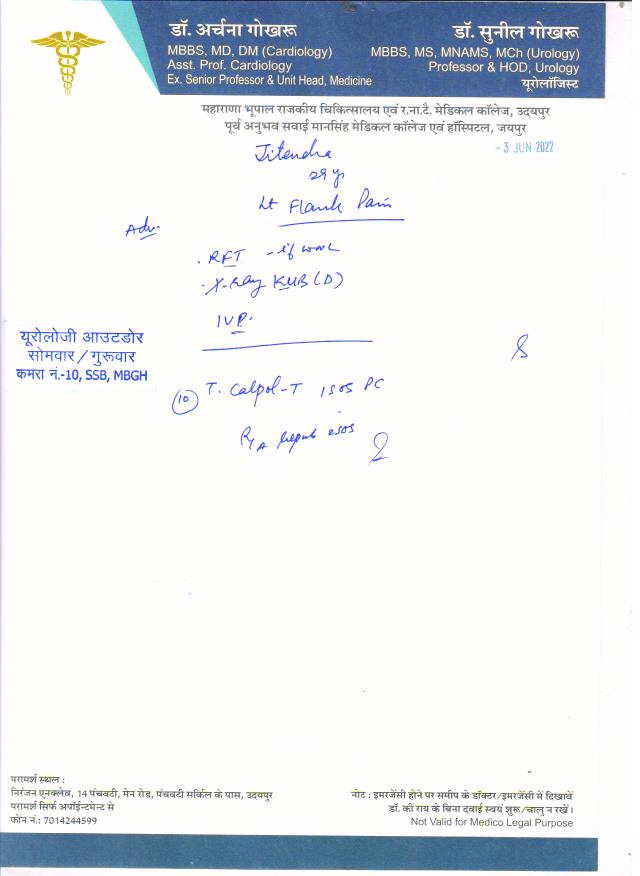 डॉ. अर्चना गोखरू
MBBS, MD, DM (Cardiology)
Asst. Prof. Cardiology
Ex. Senior Professor & Unit Head, Medicine
डॉ. सुनील गोखरू
MBBS, MS, MNAMS, MCh (Urology)
Professor & HOD, Urology
यूरोलॉजिस्ट
महाराणा भूपाल राजकीय चिकित्सालय एवं र.ना.टै. मेडिकल कॉलेज, उदयपुर
पूर्व अनुभव सवाई मानसिंह मेडिकल कॉलेज एवं हॉस्पिटल, जयपुर
- 3 JUN 2022
Jitendra
29 y
Lt Flank Pain
Adv.
. RFT - if WNL
. X-Ray KUB (D)
IVP.
यूरोलोजी आउटडोर
सोमवार / गुरूवार
कमरा नं.-10, SSB, MBGH
10 T. Calpol-T 1 SOS PC
SOS
परामर्श स्थल :
निरंजन एनक्लेव, 14 पंचवटी, मेन रोड, पंचवटी सर्किल के पास, उदयपुर
परामर्श सिर्फ अपॉईन्टमेन्ट से
फोन नं.: 7014244599
नोट : इमरजेंसी होने पर समीप के डॉक्टर/इमरजेंसी में दिखावें
डॉ. की राय के बिना दवाई स्वयं शुरू/चालु न रखें।
Not Valid for Medico Legal Purpose